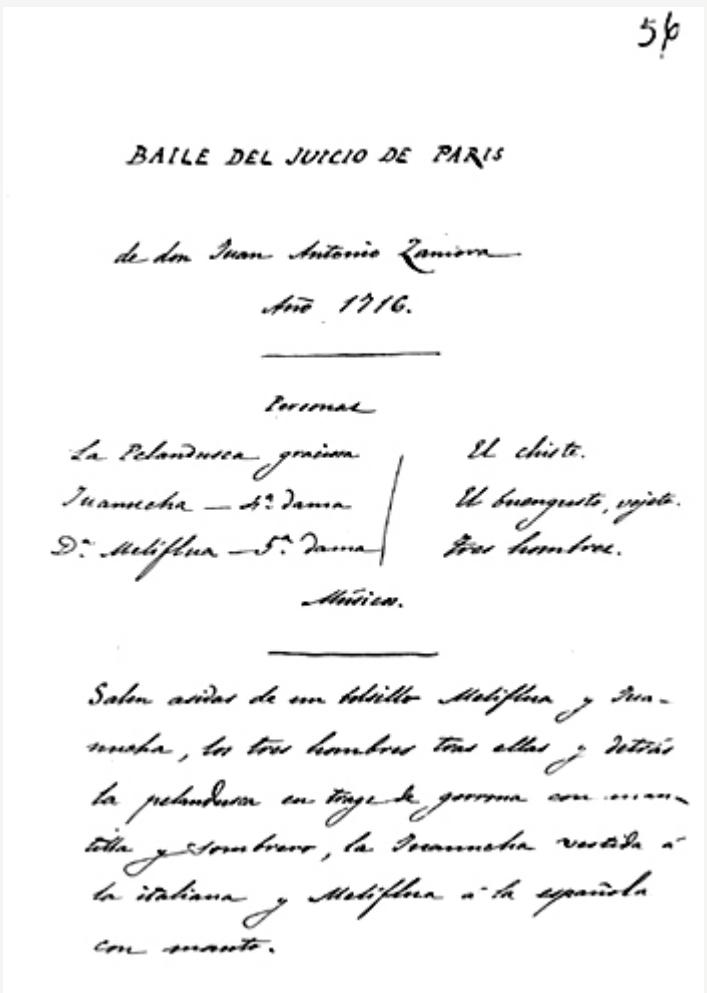 56
BAILE DEL JUICIO DE PARIS
de don Juan Antonio Zamora
Año 1716.
Personas
La Pelandusca graciosa
Juanucha — 4ª dama
Dª Meliflua — 5ª dama
El chiste.
El buengusto, vejete.
Tres hombres.
Músicos.
Salen asidas de un bolsillo Meliflua y Jua-
nucha, los tres hombres tras ellas y detrás
la pelandusca en trage de gorrona con man-
tilla y sombrero, la Juanucha vestida á
la italiana y Meliflua á la española
con manto.